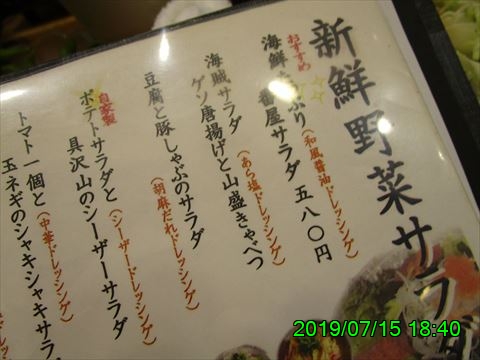 新鮮野菜サラダ
おすすめ
海鮮たっぷり
(和風醤油ドレッシング)
一番屋サラダ 五八〇円
海賊サラダ
(あら塩ドレッシング)
ゲソ唐揚げと山盛きゃべつ
豆腐と豚しゃぶのサラダ
(胡麻だれドレッシング)
自家製
ポテトサラダと
(シーザードレッシング)
具沢山のシーザーサラダ
トマト一個と
(中華ドレッシング)
玉ネギのシャキシャキサラ
2019/07/15 18:40